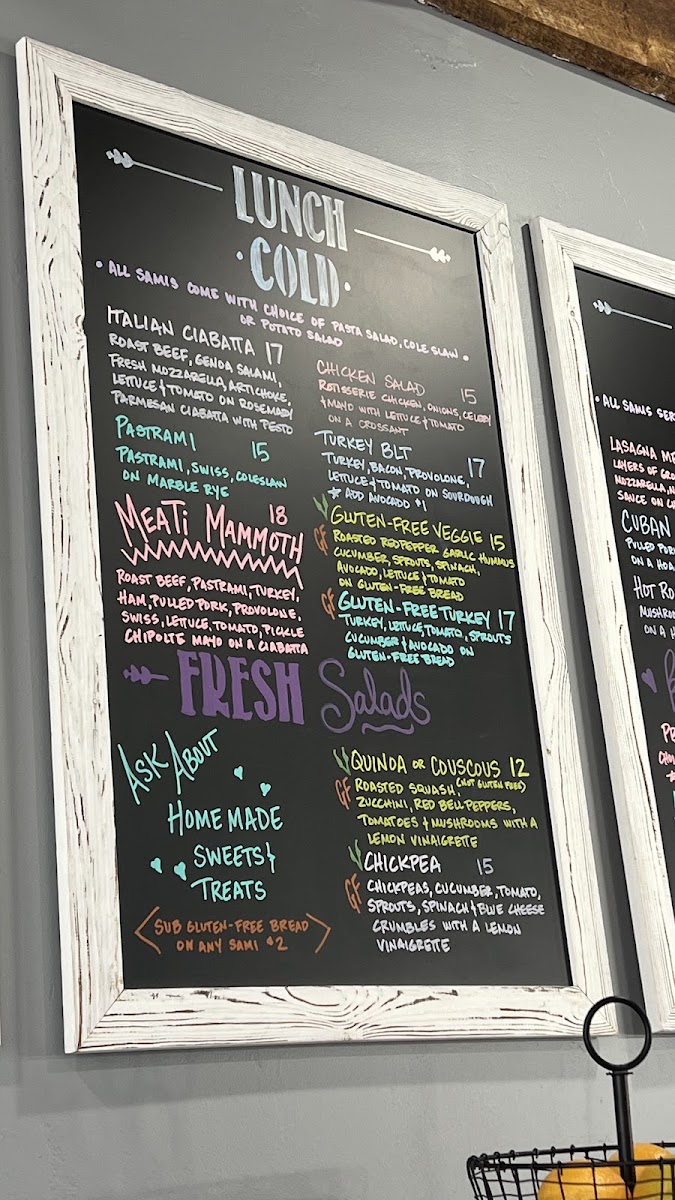 LUNCH
·COLD·
• ALL SAMIS COME WITH CHOICE OF PASTA SALAD, COLE SLAW •
OR POTATO SALAD
ITALIAN CIABATTA 17
ROAST BEEF, GENOA SALAMI,
FRESH MOZZARELLA, ARTICHOKE,
LETTUCE & TOMATO ON ROSEMARY
PARMESAN CIABATTA WITH PESTO
PASTRAMI 15
PASTRAMI, SWISS, COLESLAW
ON MARBLE RYE
MEATI MAMMOTH 18
ROAST BEEF, PASTRAMI, TURKEY,
HAM, PULLED PORK, PROVOLONE,
SWISS, LETTUCE, TOMATO, PICKLE
CHIPOLTE MAYO ON A CIABATTA
CHICKEN SALAD 15
ROTISSERIE CHICKEN, ONIONS, CELERY
& MAYO WITH LETTUCE & TOMATO
ON A CROSSANT
TURKEY BLT 17
TURKEY, BACON, PROVOLONE,
LETTUCE & TOMATO ON SOURDOUGH
★ ADD AVOCADO $1
GLUTEN-FREE VEGGIE 15
GF ROASTED RED PEPPER GARLIC HUMMUS
CUCUMBER, SPROUTS, SPINACH,
AVOCADO, LETTUCE & TOMATO
ON GLUTEN-FREE BREAD
GF GLUTEN-FREE TURKEY 17
TURKEY, LETTUCE, TOMATO, SPROUTS
CUCUMBER & AVOCADO ON
GLUTEN-FREE BREAD
FRESH Salads
ASK ABOUT
HOME MADE
SWEETS &
TREATS
<SUB GLUTEN-FREE BREAD
ON ANY SAMI $2>
QUINOA OR COUSCOUS 12
(NOT GLUTEN FREE)
GF ROASTED SQUASH,
ZUCCHINI, RED BELL PEPPERS,
TOMATOES & MUSHROOMS WITH A
LEMON VINAIGRETTE
CHICKPEA 15
GF CHICKPEAS, CUCUMBER, TOMATO,
SPROUTS, SPINACH & BLUE CHEESE
CRUMBLES WITH A LEMON
VINAIGRETTE
• ALL SAMIS
LASAGNA
LAYERS OF
MOZZARELLA,
SAUCE ON
CUBAN
PULLED
ON A
HOT
ON A